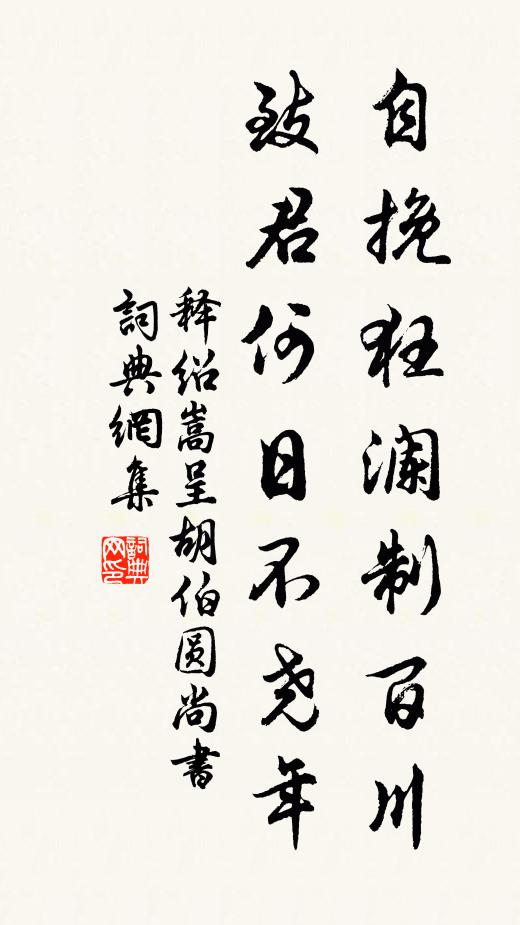 自挽狂澜制百川
致君何日不尧年
释绍嵩呈胡伯圆尚书
詞典網集
詞典网印